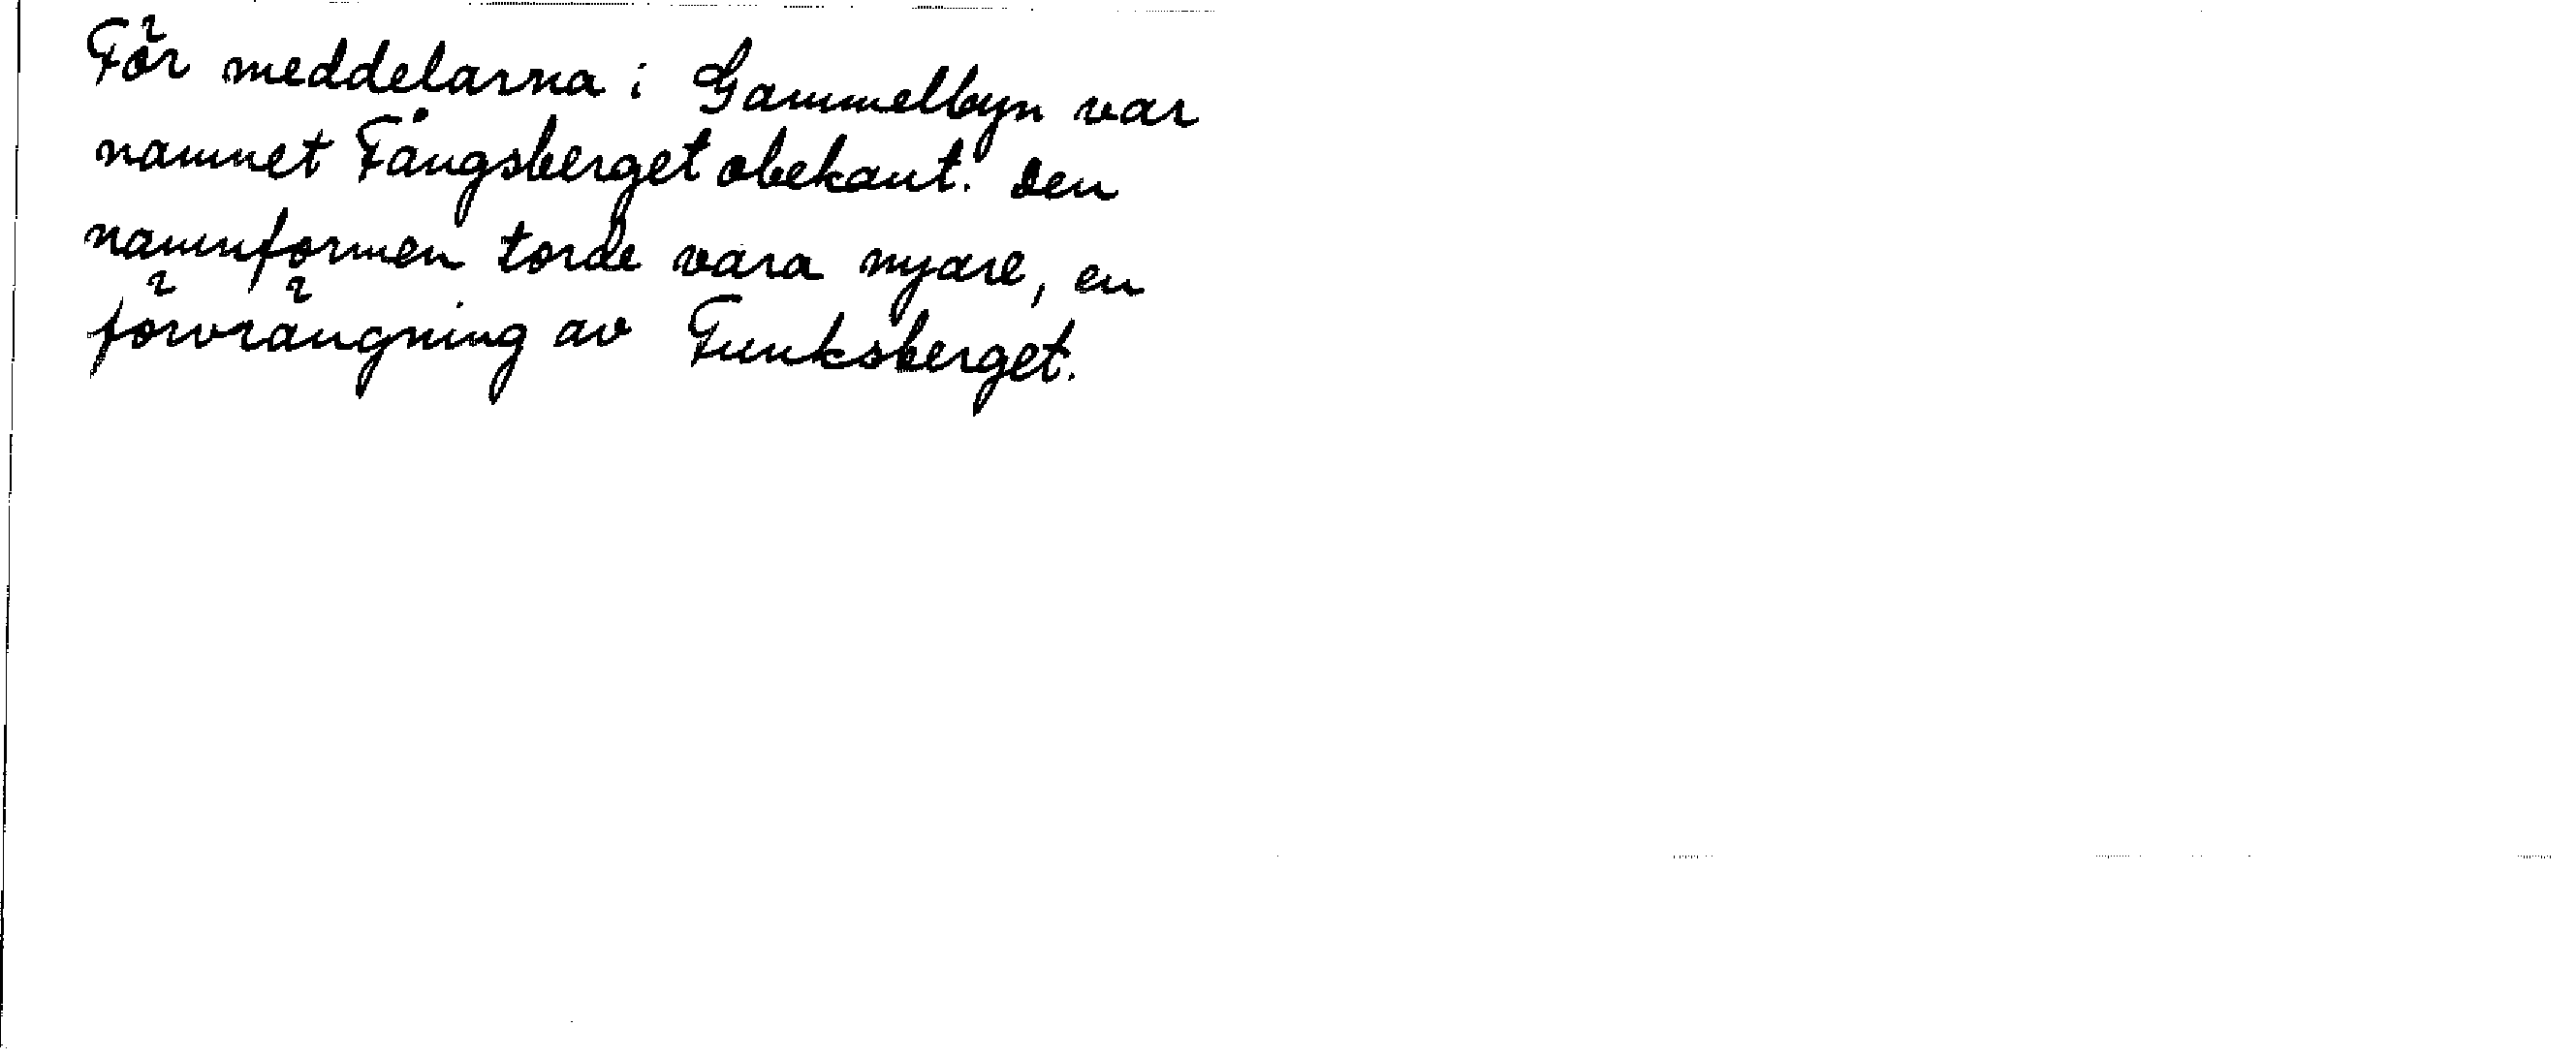 För meddelarna i Gammelbyn var
namnet Fångsberget obekant. Den
namnformen torde vara nyare, en
förvrängning av Funksberget.